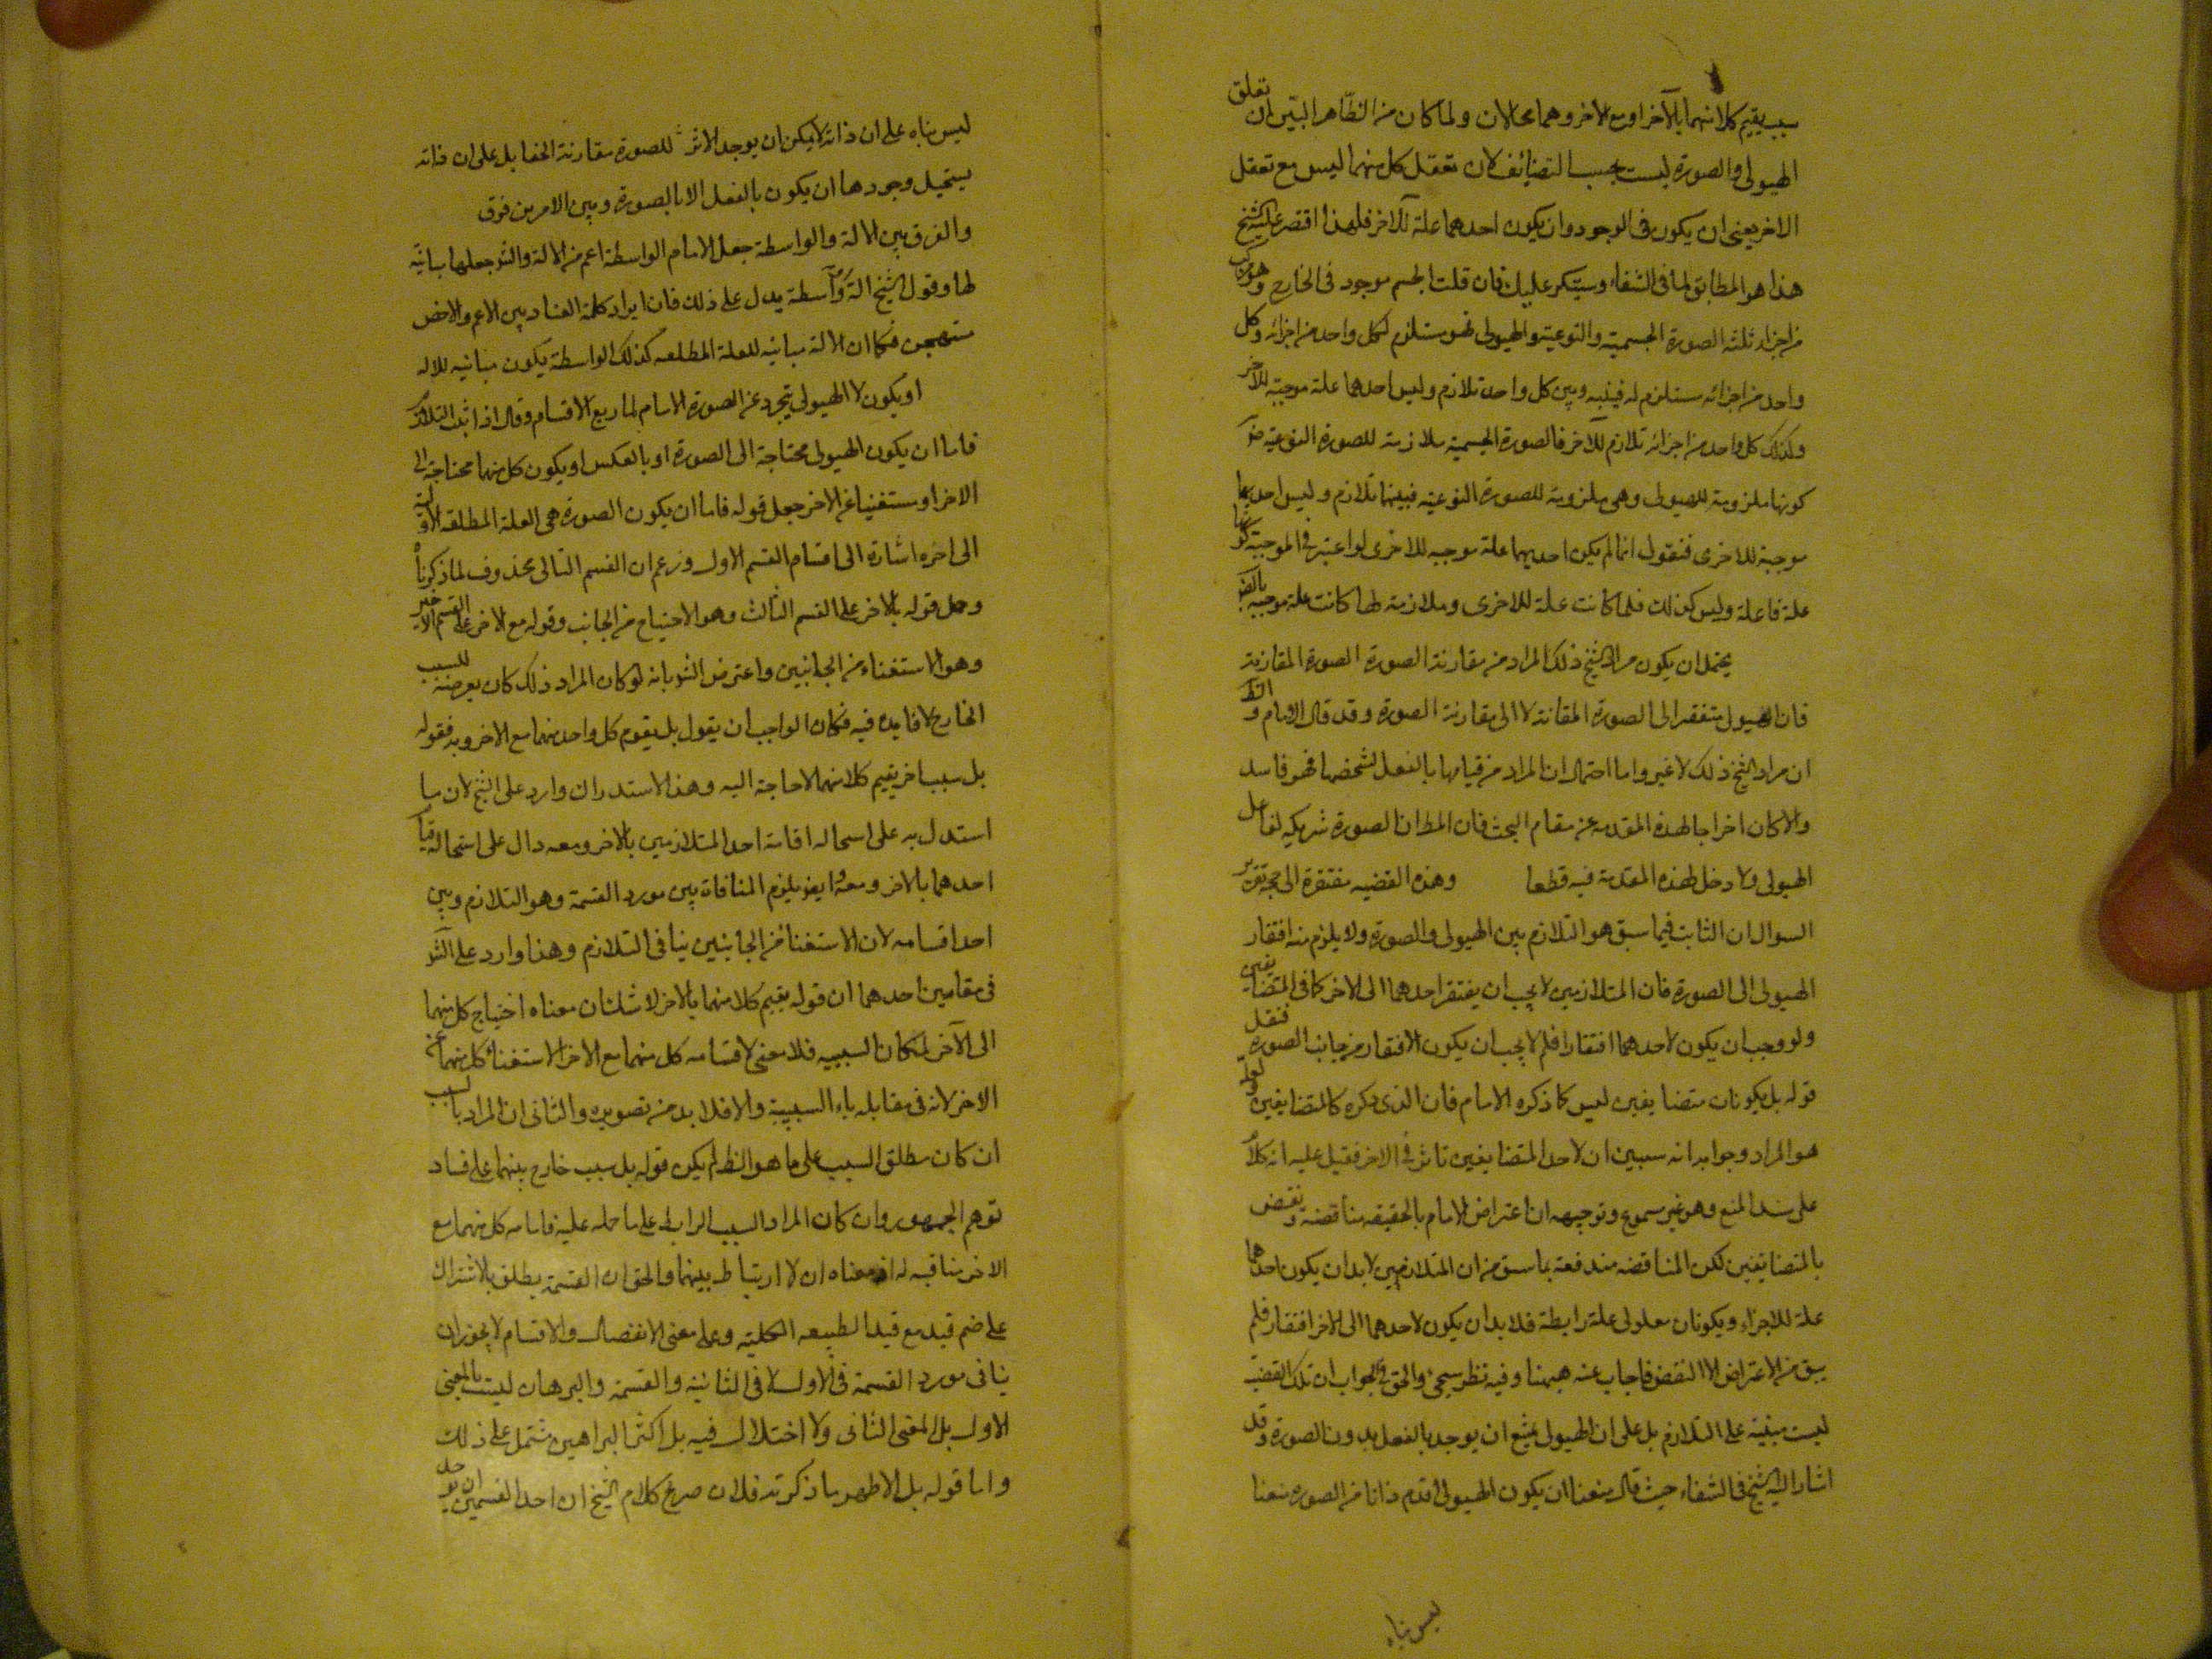 سبب يقيم كلا منهما بالآخر او مع الاخر وهما محالان ولما كان من الظاهر البيّن ان تعلق
الهيولى والصورة ليست بحسب التضائف لان تعقل كل منهما ليس مع تعقل
الاخر يعنى ان يكون فى الوجود وان يكون احدهما علة للآخر فلهذا اقتصر عليه الشيخ
هذا هو المطابق لما فى الشفاء وسيتكرر عليك فان قلت الجسم موجود فى الخارج وهو مركب
من اجزاء ثلثه الصورة الجسمية والنوعية والهيولى فهو مستلزم لكل واحد من اجزائه وكل
واحد من اجزائه مستلزم له فبينه وبين كل واحد تلازم وليس احدهما علة موجبة للاخر
وكذلك كل واحد من اجزائه تلازم للآخر فالصورة الجسمية ملازمة للصورة النوعية ضو
كونها ملزومة للهيولى وهى ملزومة للصورة النوعيه فبينهما تلازم وليس احديهما
موجبة للاخرى فنقول انما لم يكن احديهما علة موجبه للاخرى لو اعتبر فى الموجبة كونها
علة فاعلة وليس كذلك فلما كانت علة للاخرى وملازمة لها كانت علة موجبه
يحتمل ان يكون مراد الشيخ ذلك المراد من مقارنة الصورة الصورة المقارنة
فان الهيولى تفتقر الى الصورة المقارنة لا الى مقارنة الصورة وقد قال الامام و
ان مراد الشيخ ذلك لا غير واما احتمال ان المراد من قيامها بالفعل تشخصها فهو فاسد
والا كان اخراجا لهذه المقدمه عن مقام البحث فان المط ان الصورة شريكه لفاعل
الهيولى ولا دخل لهذه المقدمة فيه قطعا وهذه القضيه مفتقرة الى حجة تقرير
السوال ان الثابت فيما سبق هو التلازم بين الهيولى والصورة ولا يلزم منه افتقار
الهيولى الى الصورة فان المتلازمين لا يجب ان يفتقر احدهما الى الاخر كما فى المتضايفين
ولو وجب ان يكون لاحدهما افتقار فلم لا يجب ان يكون الافتقار من جانب الصورة فنقل
قوله بل يكونان متضايفين ليس كما ذكره الامام فان الذى ذكره كالمتضايفين
هو المراد وجوابه انه سيبين ان لاحد المتضايفين تاثر فى الاخر فقيل عليه انه كلام
على سند المنع وهو غير مسموع وتوجيهه ان اعتراض الامام بالحقيقه مناقضة ونقض
بالمتضايفين لكن المناقضه مندفعة بما سبق من ان المتلازمين لا بد ان يكون احدهما
علة للاجزاء ويكونان معلولى علة رابطة فلا بد ان يكون لاحدهما الى الاخر افتقار فلم
يبق من الاعتراض الا النقض فاجاب عنه هيهنا وفيه نظر سيجئ والحق فى الجواب ان تلك القضية
ليست مبنية على التلازم بل على ان الهيولى يمتنع ان يوجد بالفعل بدون الصورة وقد
اشار اليه الشيخ فى الشفاء حيث قال منعنا ان يكون الهيولى اقدم ذاتا من الصورة منعنا
ليس بناء
ليس بناء على ان ذاته لا يمكن ان يوجد الا ثر للصورة مقارنة الخفا بل على ان ذاته
يستحيل وجودها ان يكون بالفعل الا بالصورة وبين الامرين فرق
والفرق بين الالة والواسطة جعل الامام الواسطة اعم من الالة والش جعلها مباينة
لها وقول الشيخ الة او واسطة يدل على ذلك فان ايراد كلمة العناد بين الاعم والاخص
مستهجن فكما ان الالة مباينه للعلة المطلقه كذلك الواسطة يكون مباينه للاله
او يكون لا الهيولى يتجرد عن الصورة الامام لما ربع الاقسام وقال اذا ثبت التلازم
فاما ان يكون الهيولى محتاجة الى الصورة او بالعكس او يكون كل منهما محتاجة الى
الاخر او مستغنيا عن الاخر جعل قوله فاما ان يكون الصورة هى العلة المطلقه الاولية
الى اخره اشارة الى اقسام القسم الاول وزعم ان القسم الثانى محذوف لما ذكرنا
وحمل قوله بالاخر على القسم الثالث وهو الاحتياج من الجانب وقوله مع الاخر على القسم الاخير
وهو الاستغناء من الجانبين واعترض الش بانه لو كان المراد ذلك كان تعرضه للسبب
الخارج لا فايدة فيه فكان الواجب ان يقول بل يقوم كل واحد منهما مع الاخر وبه فقوله
بل سبب اخر يقيم كلا منهما لا حاجة اليه وهذا الاستدراك وارد على الشيخ لان ما
استدل به على استحاله اقامة احد المتلازمين بالاخر ومعه دال على استحاله قيام
احدهما بالاخر ومعه وايضا يلزم المنافاة بين مورد القسمة وهو التلازم وبين
احد اقسامه لان الاستغناء من الجانبين ينافى التلازم وهذا وارد على الش
فى مقامين احدهما ان قوله يقيم كلا منهما بالاخر لا شك ان معناه احتياج كل منهما
الى الآخر لمكان السببيه فلا معنى لاقسامه كل منهما مع الاخر الا استغناء كل منهما عن
الاخر لانه فى مقابله باء السببية والا فلا بد من تصويره والثانى ان المراد بالسبب
ان كان مطلق السبب على ما هو الظ لم يكن قوله بل سبب خارج بينهما على فساد
توهم الجمهور وان كان المراد السبب الرابط على ما حمله عليه فاقامه كل منهما مع
الاخر منافيه له اذ معناه ان لا ارتباط بينهما والحق ان القسمة يطلق بالاشتراك
على ضم قيد مع قيد الطبيعه الكلية وعلى معنى الانفصال والاقسام لا يجوز ان
ينافى مورد القسمة فى الاول لا فى الثانية والقسمة والبرهان ليست بالمعنى
الاول بل المعنى الثانى ولا اختلال فيه بل اكثر البراهين مشتمل على ذلك
واما قوله بل الاظهر ما ذكرته فلان صريح كلام الشيخ ان احد القسمين